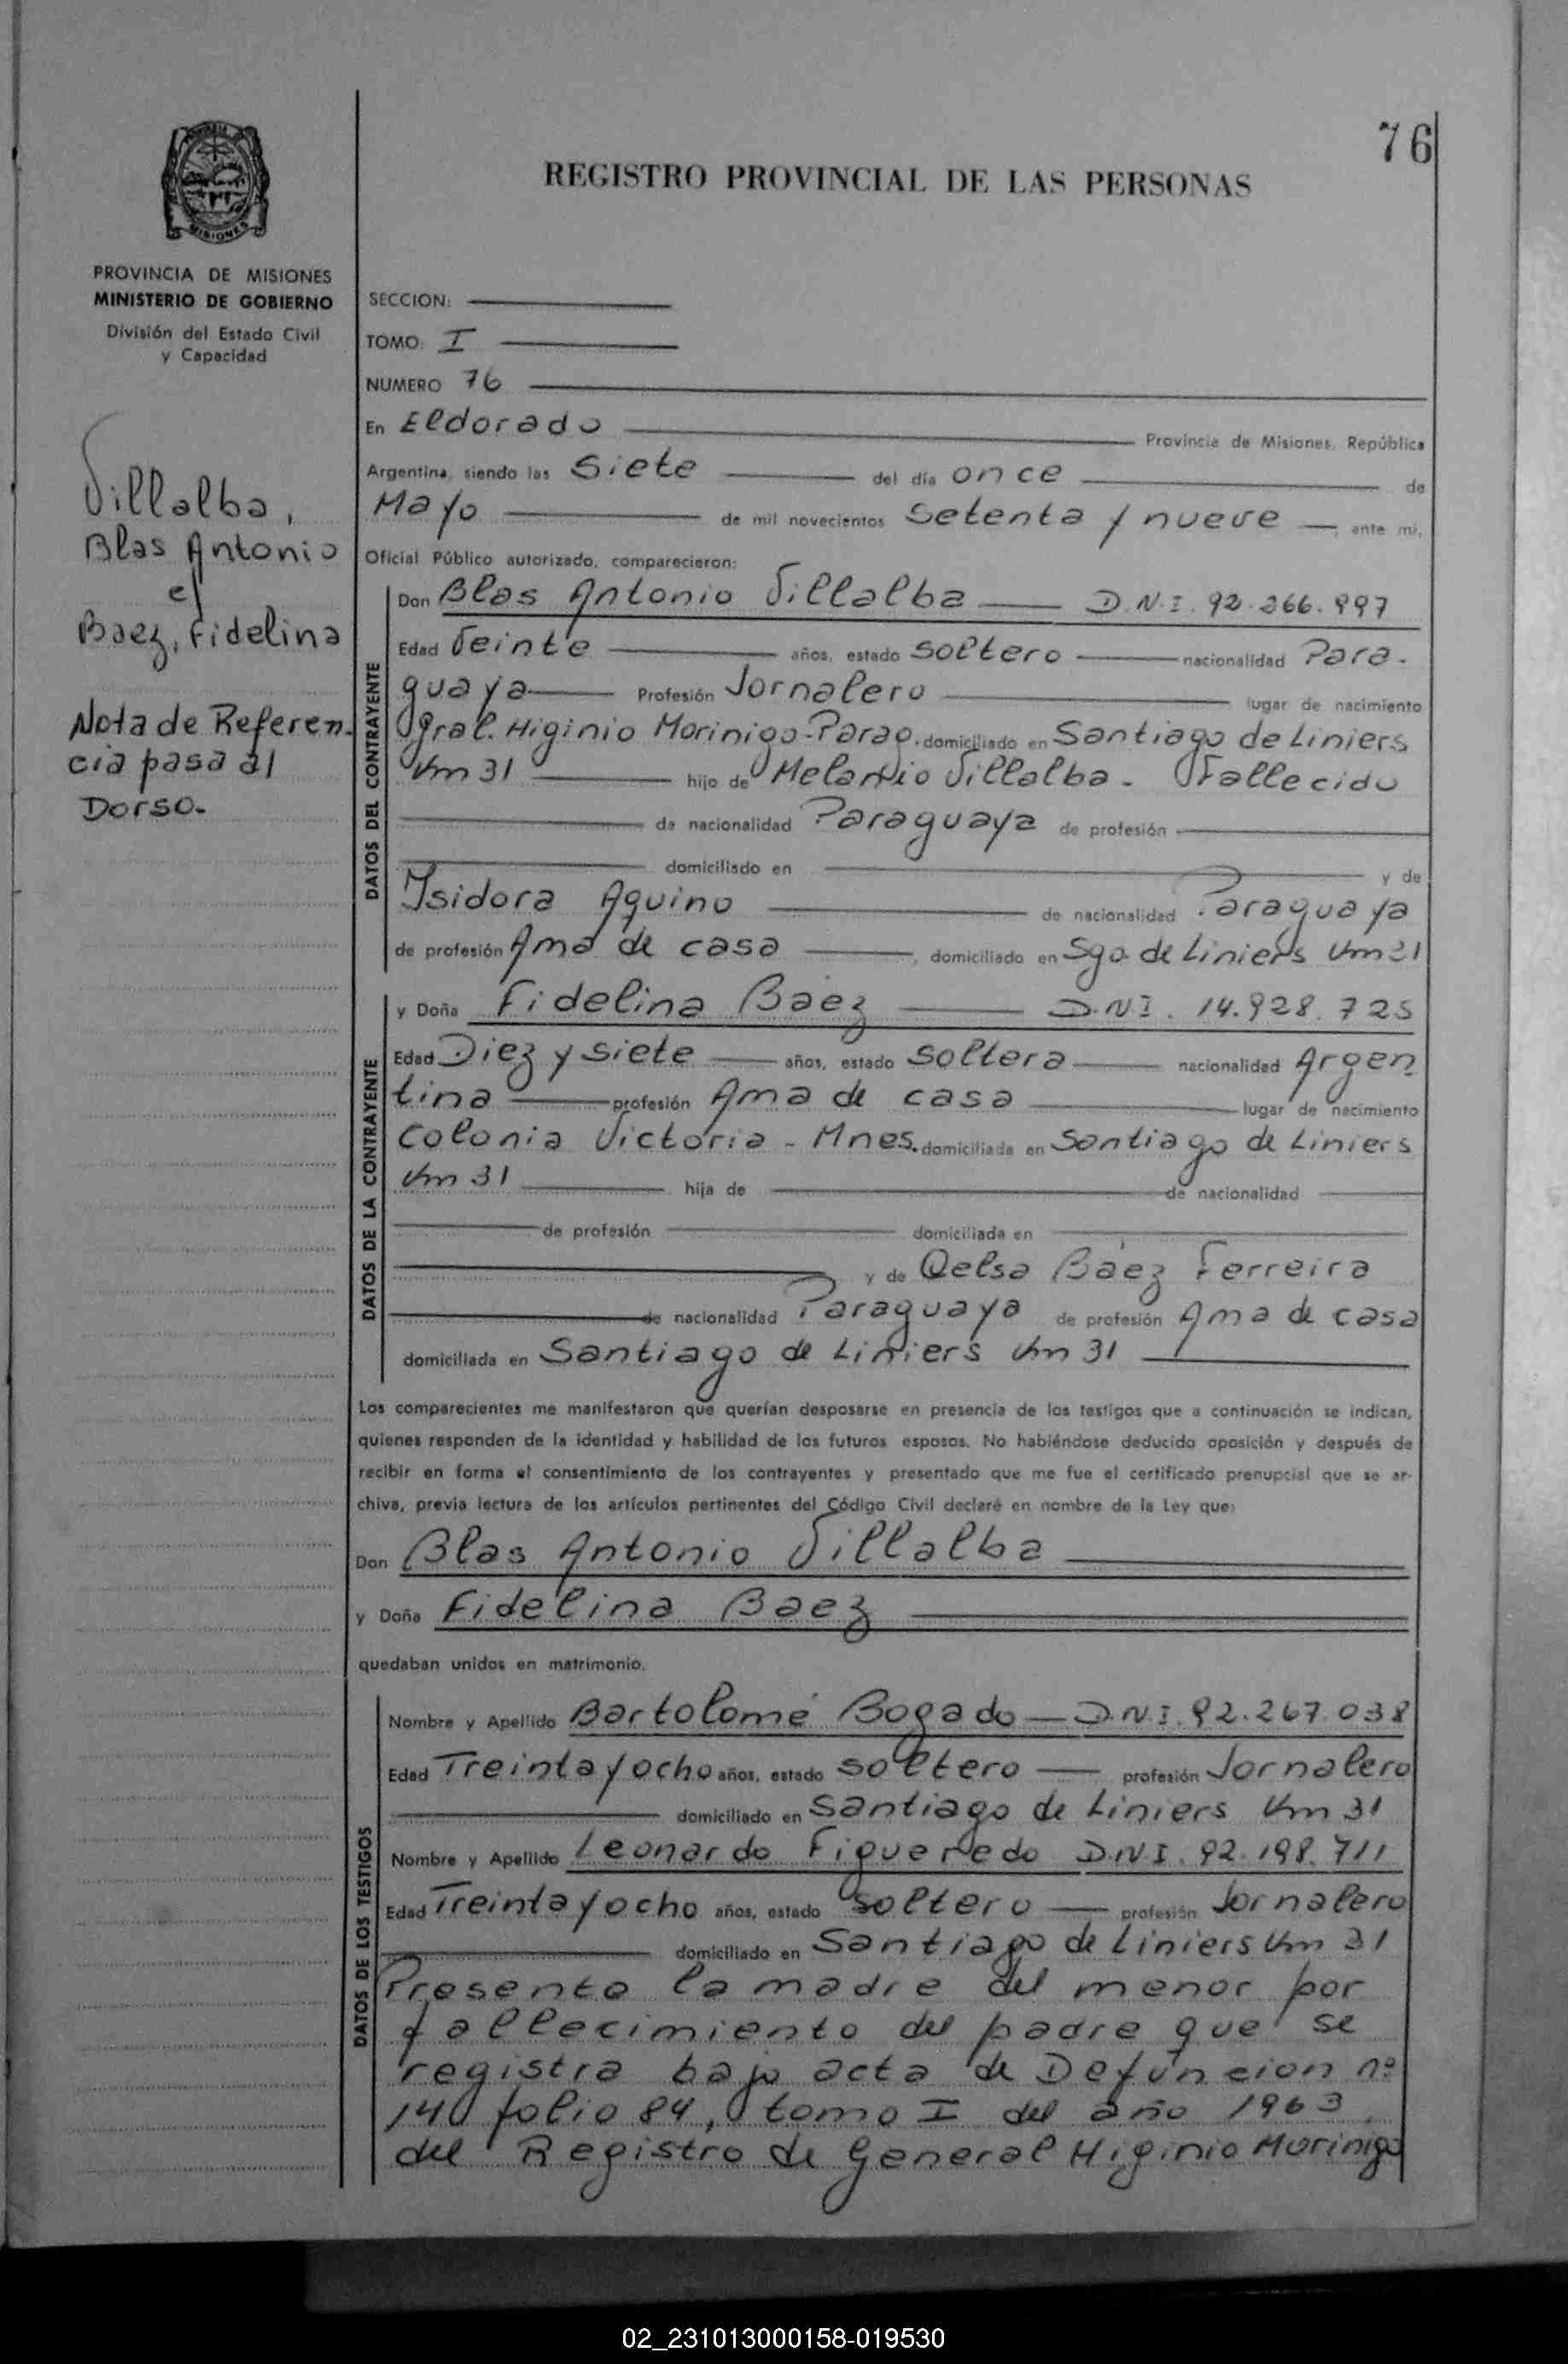 76
REGISTRO PROVINCIAL DE LAS PERSONAS
MISIONES
PROVINCIA DE MISIONES
MINISTERIO DE GOBIERNO
División del Estado Civil
y Capacidad
Villalba,
Blas Antonio
c/
Baez, Fidelina
Nota de Referen-
cia pasa al
Dorso.
SECCION:
TOMO: I
NUMERO 76
En Eldorado Provincia de Misiones, República
Argentina, siendo las Siete del día once de
Mayo de mil novecientos Setenta y nueve, ante mí,
Oficial Público autorizado, comparecieron:
DATOS DEL CONTRAYENTE
Don Blas Antonio Villalba D.N.I. 92.266.997
Edad Veinte años, estado soltero nacionalidad Para-
guaya Profesión Jornalero lugar de nacimiento
Gral. Higinio Morinigo-Parag. domiciliado en Santiago de Liniers
Km 31 hijo de Villalba - Fallecido
de nacionalidad Paraguaya de profesión
domiciliado en y de
Isidora Aquino de nacionalidad Paraguaya
de profesión Ama de casa, domiciliado en Sgo. de Liniers Km 31
DATOS DE LA CONTRAYENTE
y Doña Fidelina Baez D.N.I. 14.928.725
Edad Diez y siete años, estado soltera nacionalidad Argen
tina profesión Ama de casa lugar de nacimiento
Colonia Victoria - Mnes. domiciliada en Santiago de Liniers
Km 31 hija de de nacionalidad
de profesión domiciliada en
y de Báez Ferreira
de nacionalidad Paraguaya de profesión Ama de casa
domiciliada en Santiago de Liniers Km 31
Los comparecientes me manifestaron que querían desposarse en presencia de los testigos que a continuación se indican,
quienes responden de la identidad y habilidad de los futuros esposos. No habiéndose deducido oposición y después de
recibir en forma el consentimiento de los contrayentes y presentado que me fue el certificado prenupcial que se ar-
chiva, previa lectura de los artículos pertinentes del Código Civil declaré en nombre de la Ley que:
Don Blas Antonio Villalba
y Doña Fidelina Baez
quedaban unidos en matrimonio.
DATOS DE LOS TESTIGOS
Nombre y Apellido Bartolomé Bogado D.N.I. 92.267.038
Edad Treinta y ocho años, estado soltero profesión Jornalero
domiciliado en Santiago de Liniers Km 31
Nombre y Apellido Leonardo Figueredo D.N.I. 92.198.711
Edad Treinta y ocho años, estado soltero profesión Jornalero
domiciliado en Santiago de Liniers Km 31
Presente la madre del menor por
fallecimiento del padre que se
registra bajo acta de Defuncion nº
140 folio 84, tomo I del año 1963
del Registro de General Higinio Morinigo
02_231013000158-019530